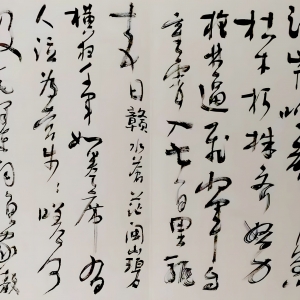 枯木朽株齐努力
枪林逼飞将军自
重霄入七百里驱
十五日赣水苍茫闽山碧
横扫千军如卷席有
人泣为营步步嗟何
及毛泽东词渔家傲